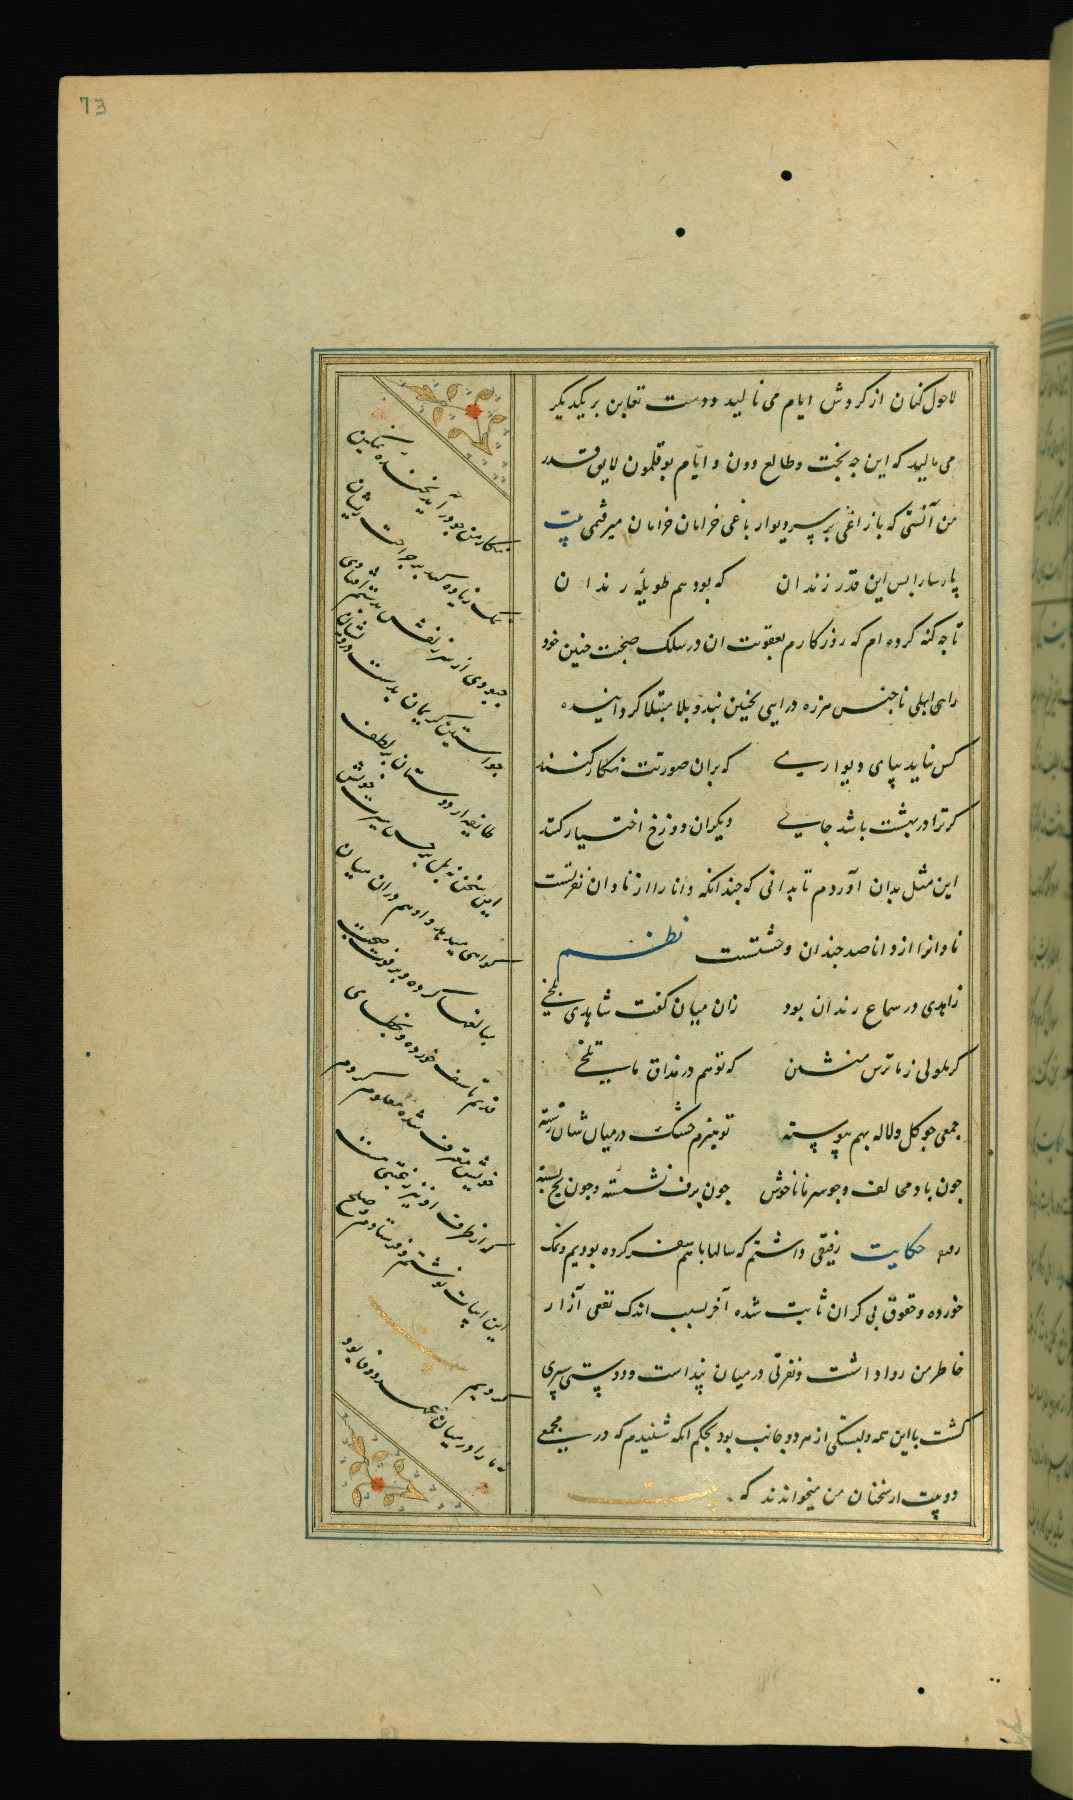 73
لاحول کنان از کردش ایام می نالید ودست تغابن بر یکدیکر
می مالید که این چه بخت وطالع دون وایّام بوقلمون لایق قدر
من آنستی که با زاغی بر سر دیوار باغی خرامان خرامان میرفتمی بیت
پارسارا بس این قدر زندان که بود هم طویلهٔ رندان
تا چه کنه کرده ام که روزکارم بعقوبت ان در سلک صحبت چنین خود
رای ابلهی ناجنس هرزه درایی بچنین بند وبلا مبتلا کردانیده
کس نیاید بپای دیواری که بران صورتت نکار کنند
کر ترا در بهشت باشد جایی دیکران دوزخ اختیار کنند
این مثل بدان آوردم تا بدانی که چندانکه دانا را از نادان نفرتست
نادانرا از دانا صد چندان وحشتست نظم
زاهدی در سماع رندان بود زان میان کفت شاهدی بلخی
کر ملولی ز ما ترش منشین که تو هم در مذاق ما تلخی
جمعی چو کل ولاله بهم پیوسته تو هیزم خشک در میان شان رسته
چون باد مخالف وچو سرما ناخوش چون برف نشسته وچون یخ بسته
حکایت رفیقی داشتم که سالها با هم سفر کرده بودیم ونمک
خورده وحقوق بی کران ثابت شده آخر بسبب اندک نفعی آزار
خاطر من روا داشت ونفرتی در میان پنداست ودوستی سپری
کشت با این همه دلبستکی از هر دو جانب بود بحکم انکه شنیدم که در مجمعی
دو بیت از سخنان من میخواندند که بیت
نکار من چو درآید بخنده نمکین
نمک زیاده کند بر جراحت ریشان
چه بودی ار سر زلفش بدستم افتادی
چو آستین کریمان بدست درویشان
طایفه از دوستان بر لطف
این سخن نه بل بر حسن سیرت خویش
کواهی میداد واو هم دران میان
مبالغها کرده وبر فوت صحبت
قدیم تاسف خورده وبخطای
خویش معترف شده معلوم کردم
که از طرف او نیز رغبتی هست
این ابیات نوشتم وفرستادم وصلح
کردیم
نه ما را در میان عهد ووفا بود